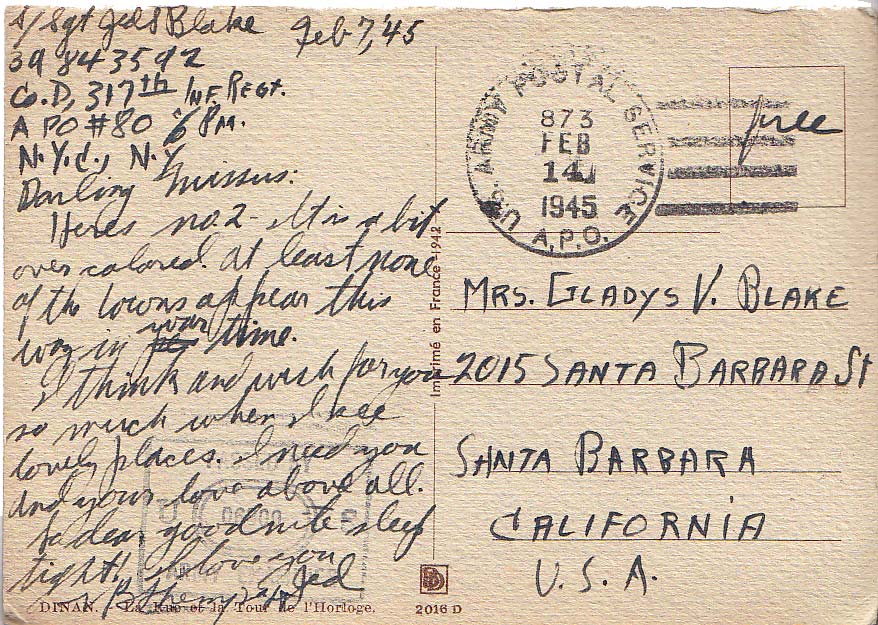 S/Sgt Jed S Blake Feb 7, '45
39 843592
Co. D, 317th INF. REGT.
APO #80 6 PM.
N.Y.C., N.Y.
Darling Missus:
Heres no. 2 - It is a bit
over colored. At least none
of the towns appear this
way in war time.
I think and wish for you
so much when I see
lovely places. I need you
and your love above all.
So dear, goodnite sleep
tight! I love you
Jed
DINAN. - La Rue et la Tour de l'Horloge.
2016 D
Imprimé en France 1942
U.S. ARMY POSTAL SERVICE
873
FEB
14
1945
A.P.O.
free
MRS. GLADYS V. BLAKE
2015 SANTA BARBARA St
SANTA BARBARA
CALIFORNIA
U.S.A.